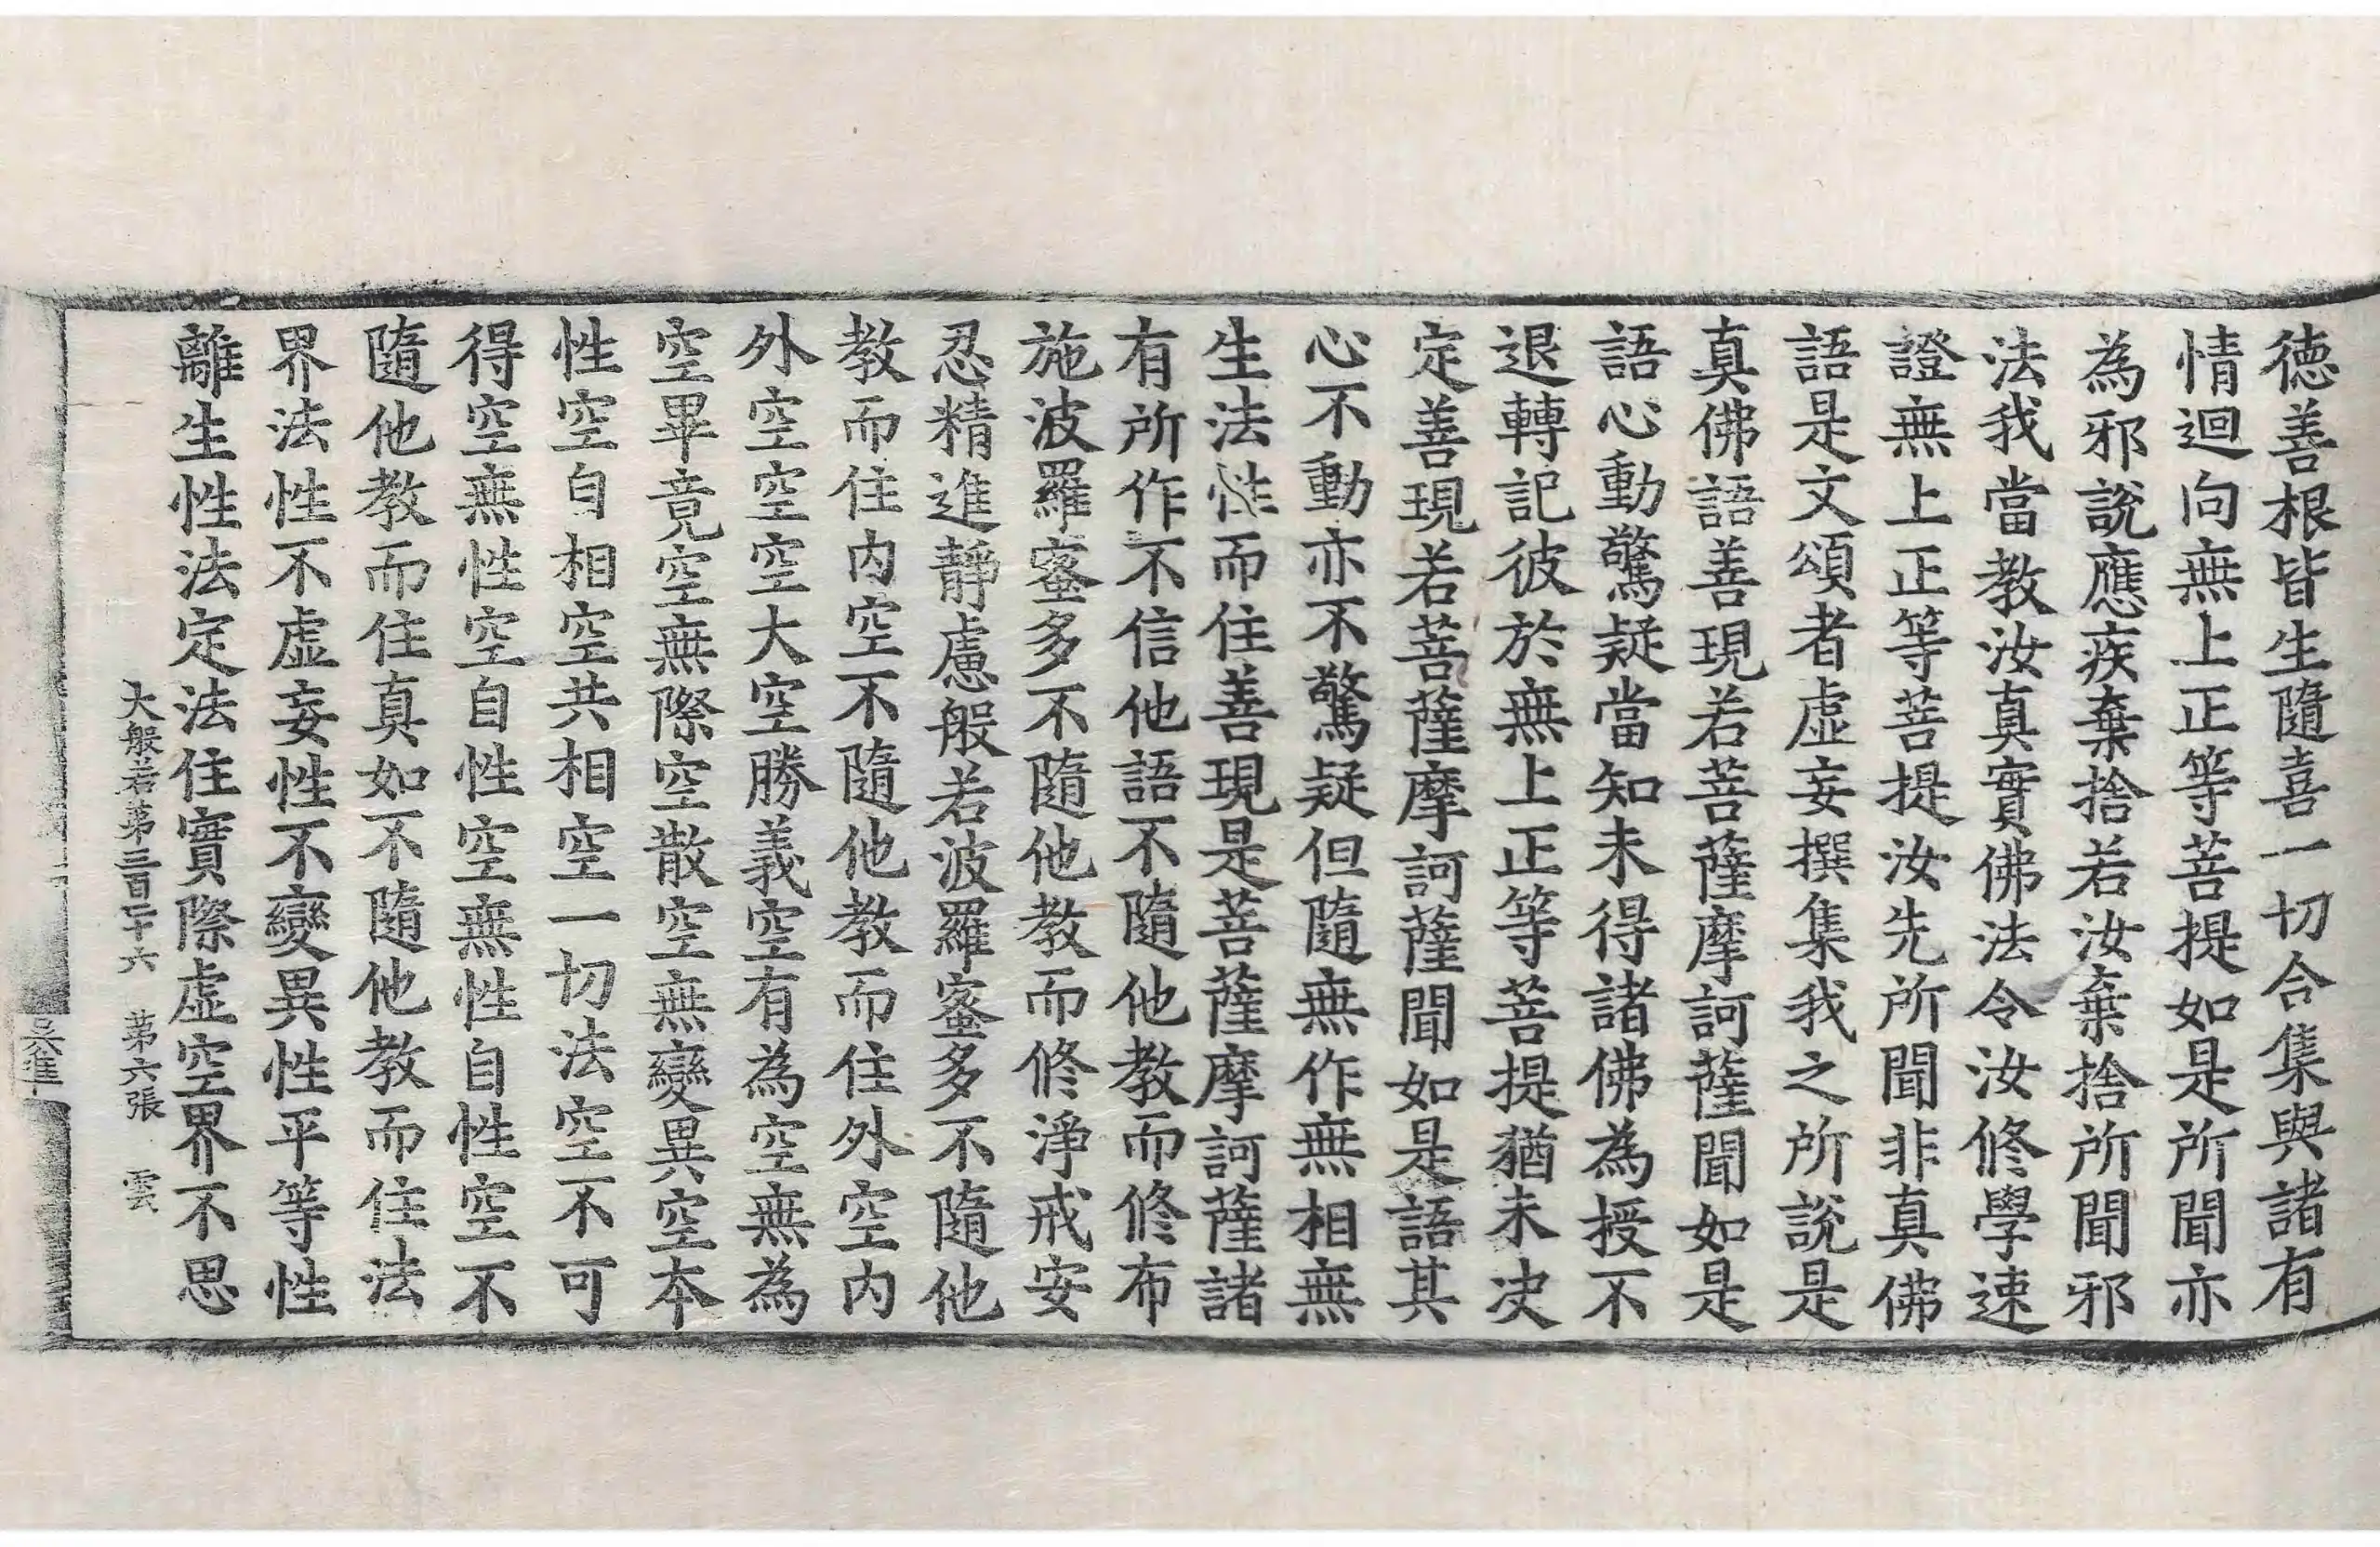 德善根皆生隨喜一切合集與諸有
情迴向無上正等菩提如是所聞亦
為邪說應疾棄捨若汝棄捨所聞邪
法我當教汝真實佛法令汝修學速
證無上正等菩提汝先所聞非真佛
語是文頌者虛妄撰集我之所說是
真佛語善現若菩薩摩訶薩聞如是
語心動驚疑當知未得諸佛為授不
退轉記彼於無上正等菩提猶未决
定善現若菩薩摩訶薩聞如是語其
心不動亦不驚疑但隨無作無相無
生法性而住善現是菩薩摩訶薩諸
有所作不信他語不隨他教而修布
施波羅蜜多不隨他教而修淨戒安
忍精進靜慮般若波羅蜜多不隨他
教而住內空不隨他教而住外空內
外空空空大空勝義空有為空無為
空畢竟空無際空散空無變異空本
性空自相空共相空一切法空不可
得空無性空自性空無性自性空不
隨他教而住真如不隨他教而住法
界法性不虛妄性不變異性平等性
離生性法定法住實際虛空界不思
大般若第三百二十六 第六張 雲